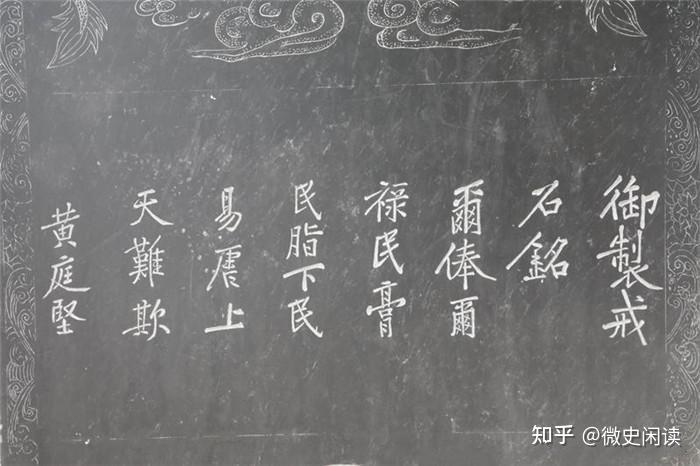 御製戒
石銘
爾俸爾
祿民膏
民脂下民
易虐上
天難欺
黃庭堅
知乎 @微史闲读